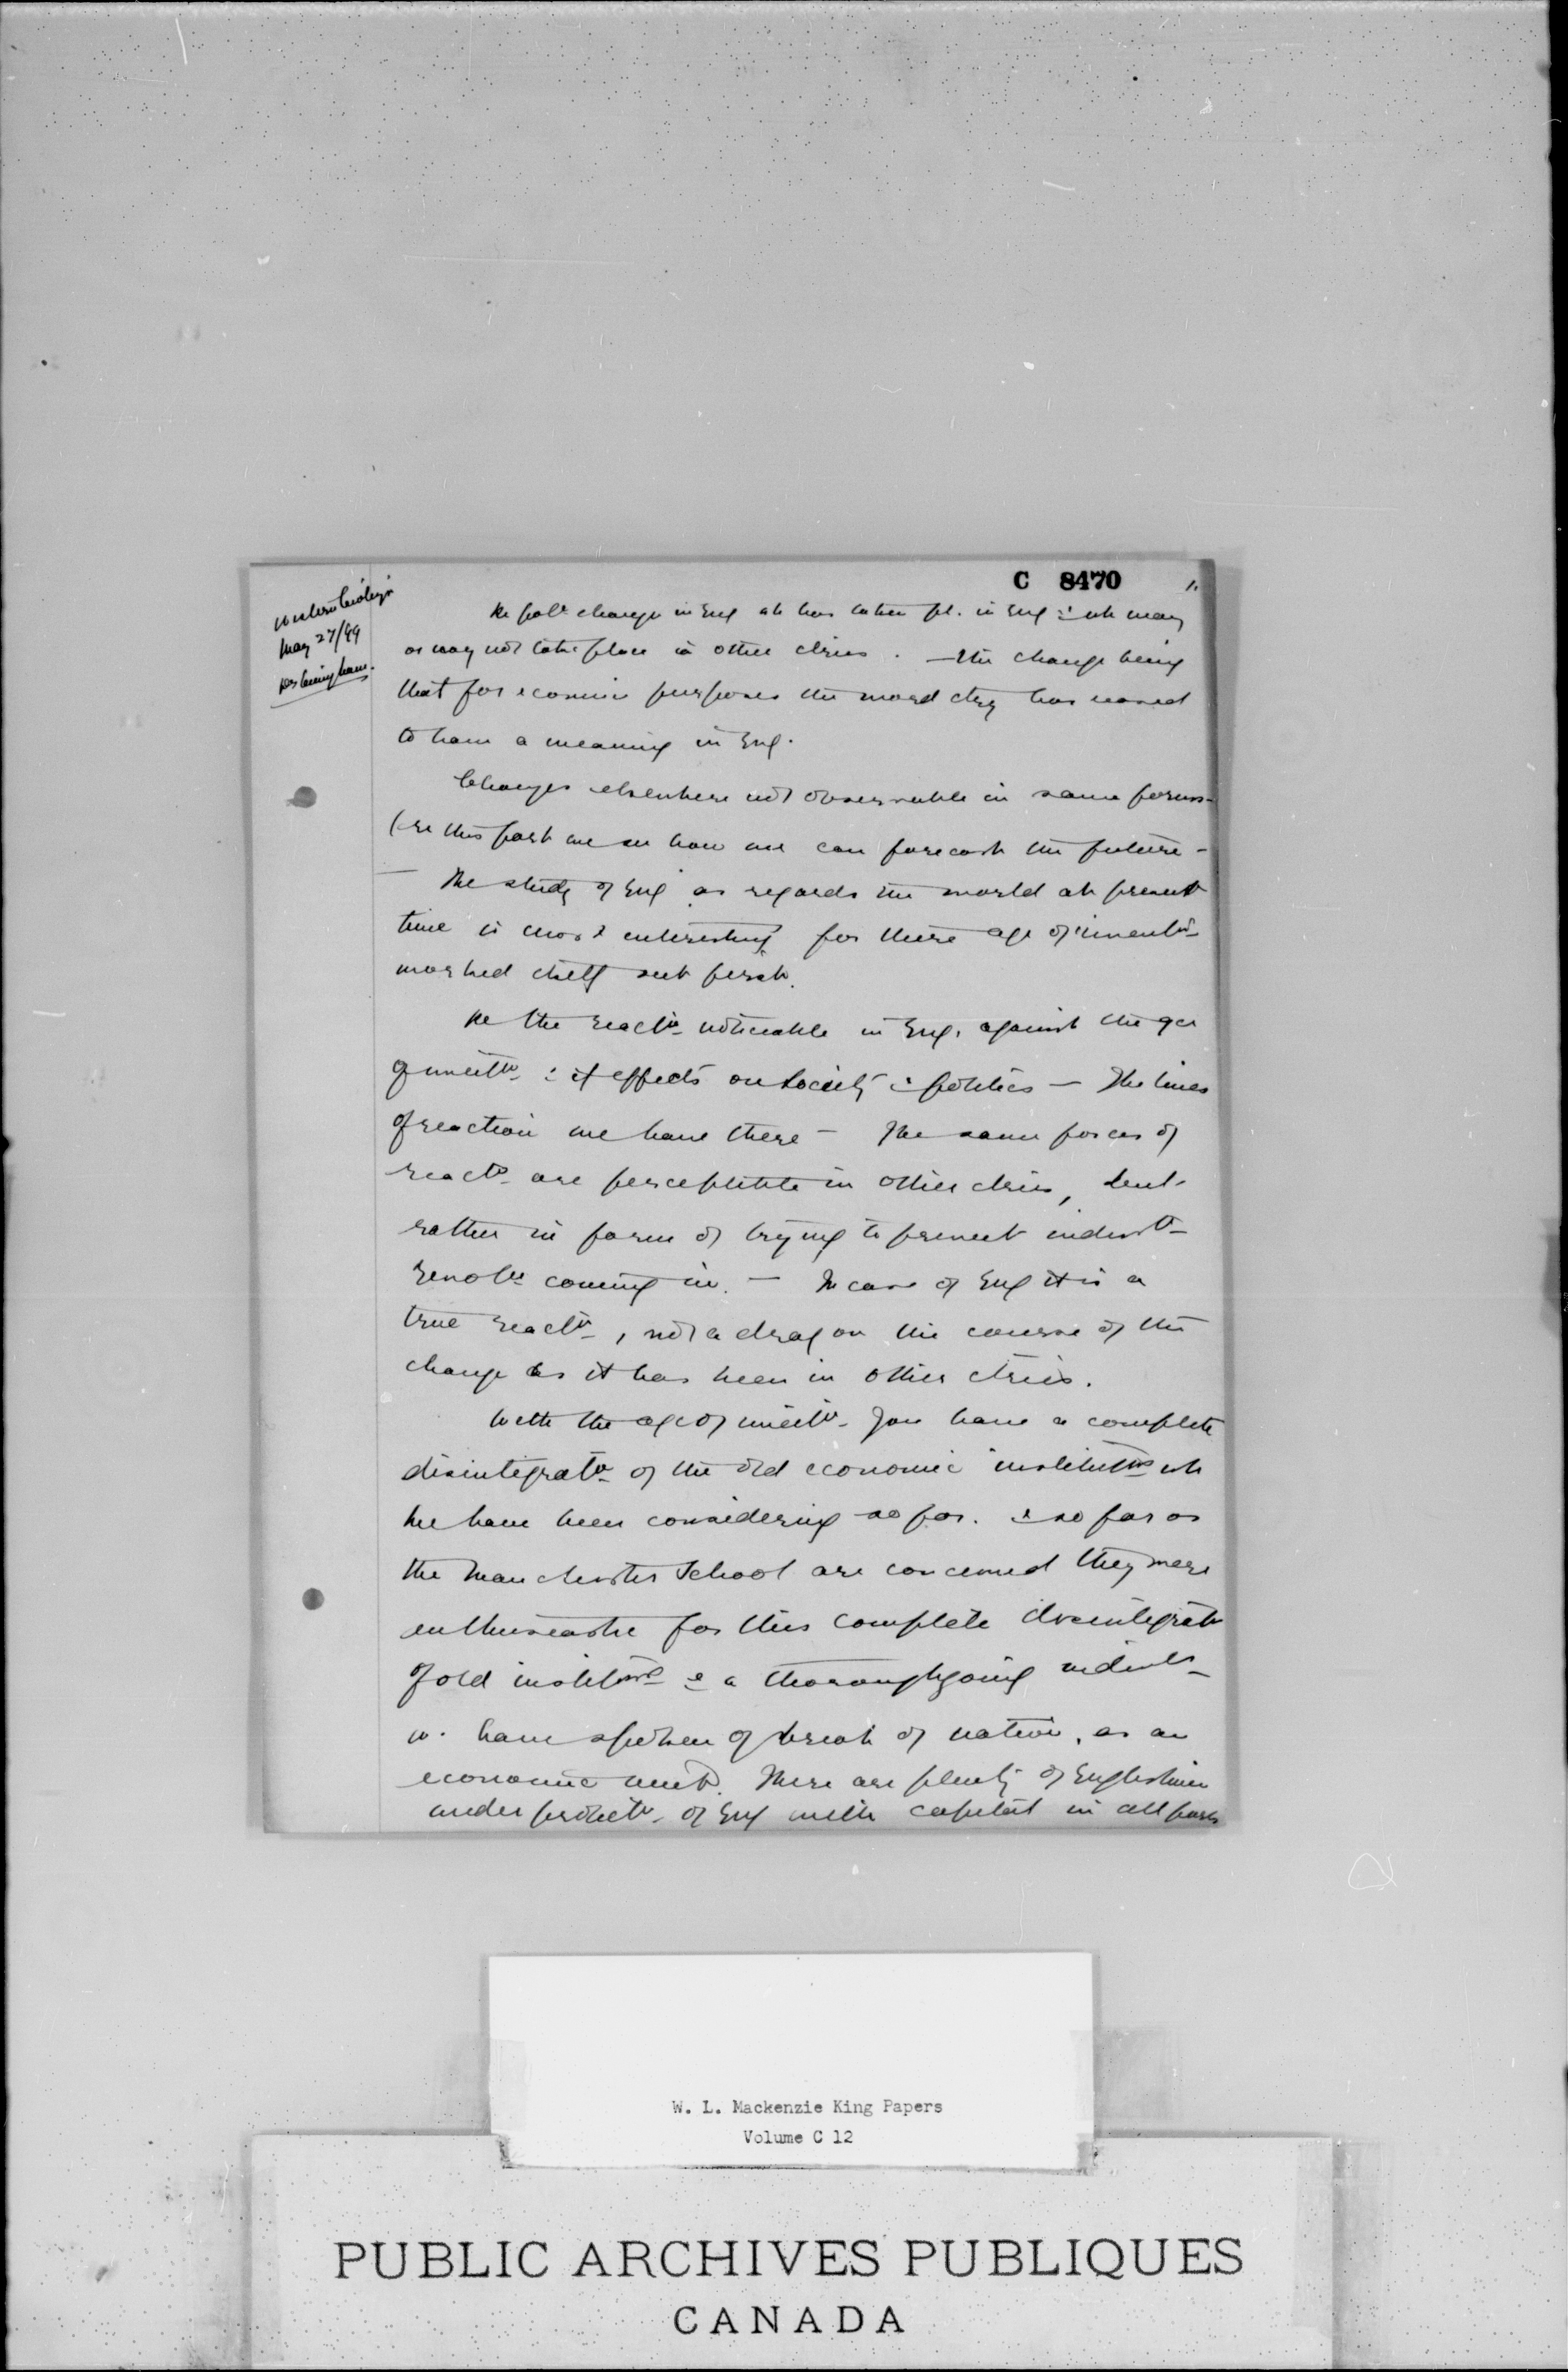 C 8470
1.
May 27/99
Re polt change in Eng wh has taken pl. in Eng & wh may
or may not take place in other ctries. — the change being
that for economic purposes the word ctry has ceased
to have a meaning in Eng.
Changes elsewhere not observable in same forms —
this part we see how we can forecast the future —
— The study of Eng as regards the world at present
time is most interesting for there age of inventn
worked itself out first.
Re the reactn noticeable in Eng. against the age
of inventn & its effects on Society & politics — The lines
of reaction we have there — The same forces of
reactn are perceptible in other ctries, but
rather in form of trying to prevent indust
revoln coming in. — In case of Eng it is a
true reactn, not a drag on the course of the
change as it has been in other ctries.
With the age of inventn you have a complete
disintegratn of the old economic institutns wh
we have been considering so far. & so far as
the Manchester School are concerned they were
enthusiastic for this complete disintegratn
of old institns & a thoroughgoing
w. have spoken of break of nation, as an
economic unit. There are plenty of Englishmen
under protectn of Eng with capital in all parts
W. L. Mackenzie King Papers
Volume C 12
PUBLIC ARCHIVES PUBLIQUES
CANADA